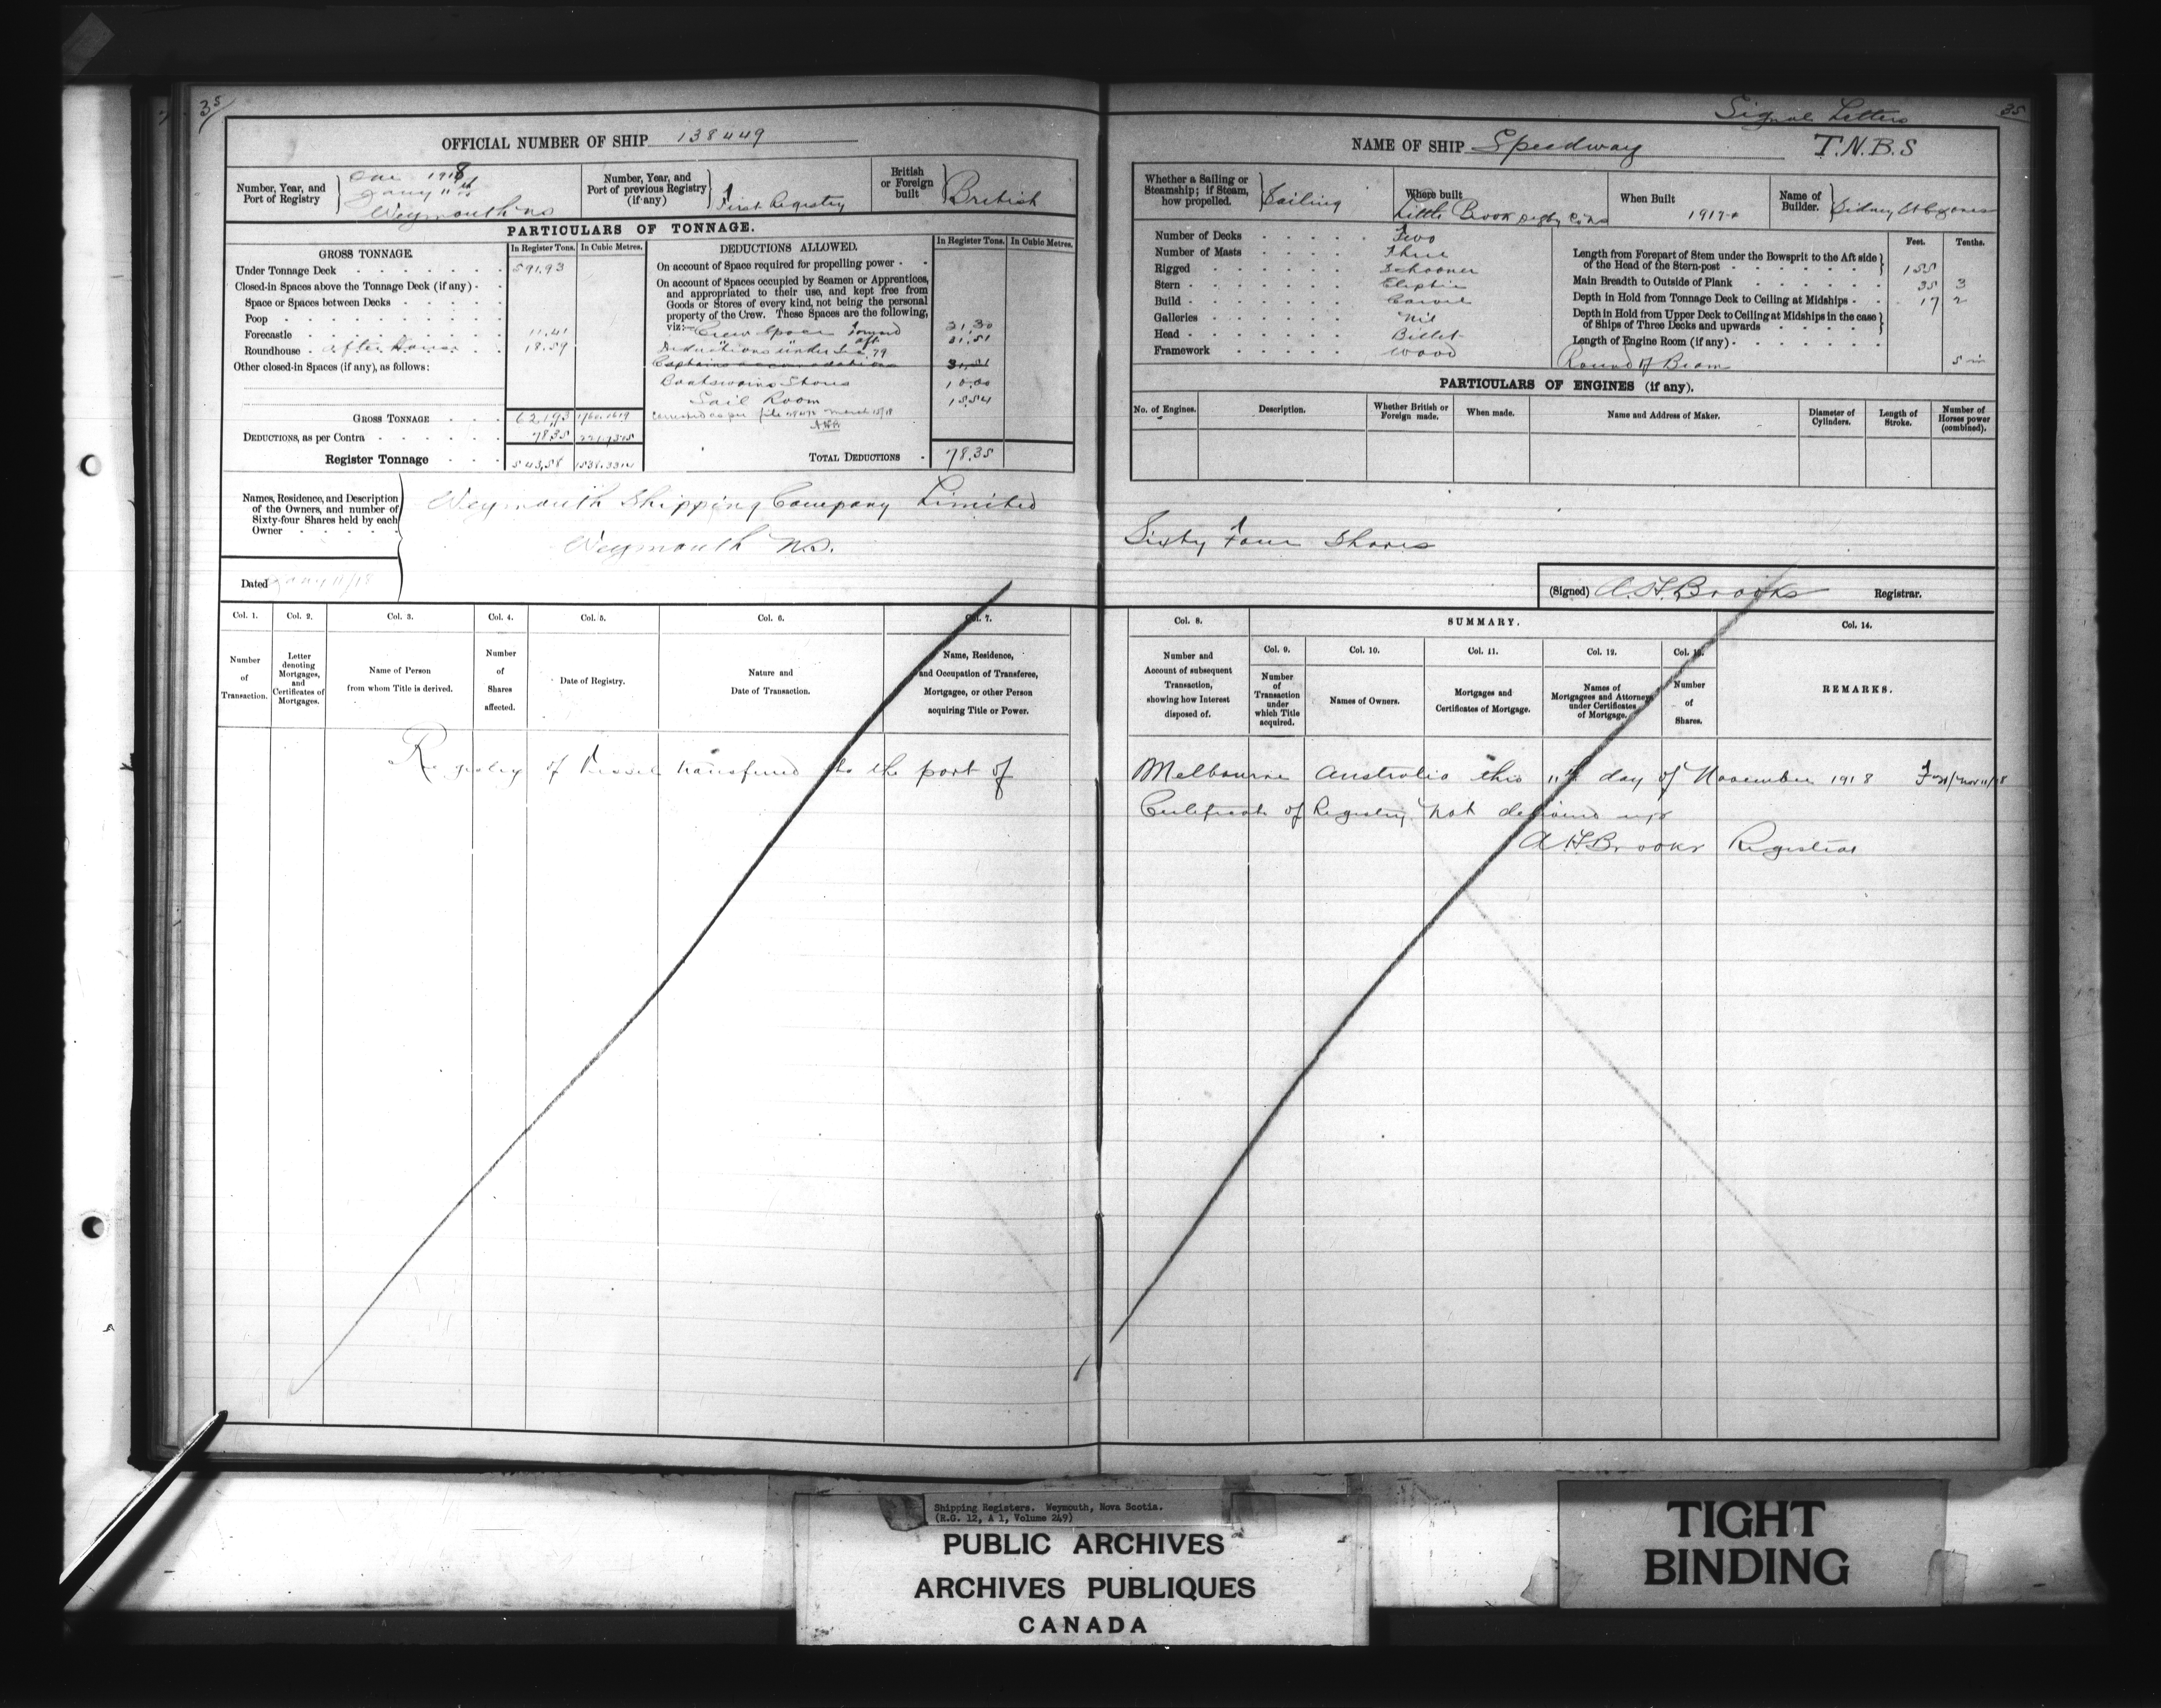 35
OFFICIAL NUMBER OF SHIP 138449
Number, Year, and Port of Registry
One 1918
Jany 11th
Weymouth NS
Number, Year, and Port of previous Registry (if any)
First Registry
British or Foreign built
British
PARTICULARS OF TONNAGE.
GROSS TONNAGE.
In Register Tons.
In Cubic Metres.
Under Tonnage Deck 591.93
Closed-in Spaces above the Tonnage Deck (if any)
Space or Spaces between Decks
Poop
Forecastle 11.41
Roundhouse after House 18.59
Other closed-in Spaces (if any), as follows:
GROSS TONNAGE 621.93 1760.1619
DEDUCTIONS, as per Contra 78.35
Register Tonnage 543.58
DEDUCTIONS ALLOWED.
In Register Tons.
In Cubic Metres.
On account of Space required for propelling power
On account of Spaces occupied by Seamen or Apprentices,
and appropriated to their use, and kept free from
Goods or Stores of every kind, not being the personal
property of the Crew. These Spaces are the following,
viz:— Crew Space Forward 21.30
aft 31.51
Deductions under Sec. 79
Captains accomodations 31.51
Boatswains Stores 10.00
Sail Room 15.54
March 15/18
AHB
TOTAL DEDUCTIONS 78.35
Names, Residence, and Description
of the Owners, and number of
Sixty-four Shares held by each
Owner
Weymouth Shipping Company Limited
Weymouth N.S.
Dated Jany 11/18
Col. 1.
Number of Transaction.
Col. 2.
Letter denoting Mortgages, and Certificates of Mortgages.
Col. 3.
Name of Person from whom Title is derived.
Col. 4.
Number of Shares affected.
Col. 5.
Date of Registry.
Col. 6.
Nature and Date of Transaction.
Col. 7.
Name, Residence, and Occupation of Transferee, Mortgagee, or other Person acquiring Title or Power.
Registry of Vessel transferred to the port of
Signal Letters
35
NAME OF SHIP Speedway T.N.B.S
Whether a Sailing or Steamship; if Steam, how propelled.
Sailing
Where built
Little Brook Digby Co NS
When Built
1917
Name of Builder.
Sidney St C Jones
Number of Decks Two
Number of Masts Three
Rigged Schooner
Stern Eliptic
Build Carvel
Galleries Nil
Head Billet
Framework Wood
Feet. Tenths.
Length from Forepart of Stem under the Bowsprit to the Aft side
of the Head of the Stern-post 155
Main Breadth to Outside of Plank 35 3
Depth in Hold from Tonnage Deck to Ceiling at Midships 17 2
Depth in Hold from Upper Deck to Ceiling at Midships in the case
of Ships of Three Decks and upwards
Length of Engine Room (if any)
Round of Beam 5 in
PARTICULARS OF ENGINES (if any).
No. of Engines.
Description.
Whether British or Foreign made.
When made.
Name and Address of Maker.
Diameter of Cylinders.
Length of Stroke.
Number of Horses power (combined).
Sixty Four Shares
(Signed) A. H. Brooks Registrar.
Col. 8.
Number and Account of subsequent Transaction, showing how Interest disposed of.
SUMMARY.
Col. 9.
Number of Transaction under which Title acquired.
Col. 10.
Names of Owners.
Col. 11.
Mortgages and Certificates of Mortgage.
Col. 12.
Names of Mortgagees and Attorneys under Certificates of Mortgage.
Col. 13.
Number of Shares.
Col. 14.
REMARKS.
Melbourne Australia this 11th day of November 1918
Certificate of Registry not delivered up
A H Brooks Registrar
Shipping Registers. Weymouth, Nova Scotia.
(R.G. 12, A 1, Volume 249)
PUBLIC ARCHIVES
ARCHIVES PUBLIQUES
CANADA
TIGHT
BINDING